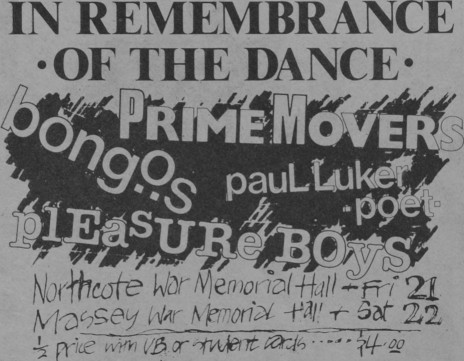 IN REMEMBRANCE
·OF THE DANCE·
PRIME MOVERS
böngos
pauL Luker
·poet·
plEasURe BOYS
Northcote War Memorial Hall + Fri 21
Massey War Memorial Hall + Sat 22
½ price with UB or student cards ..... $4.00